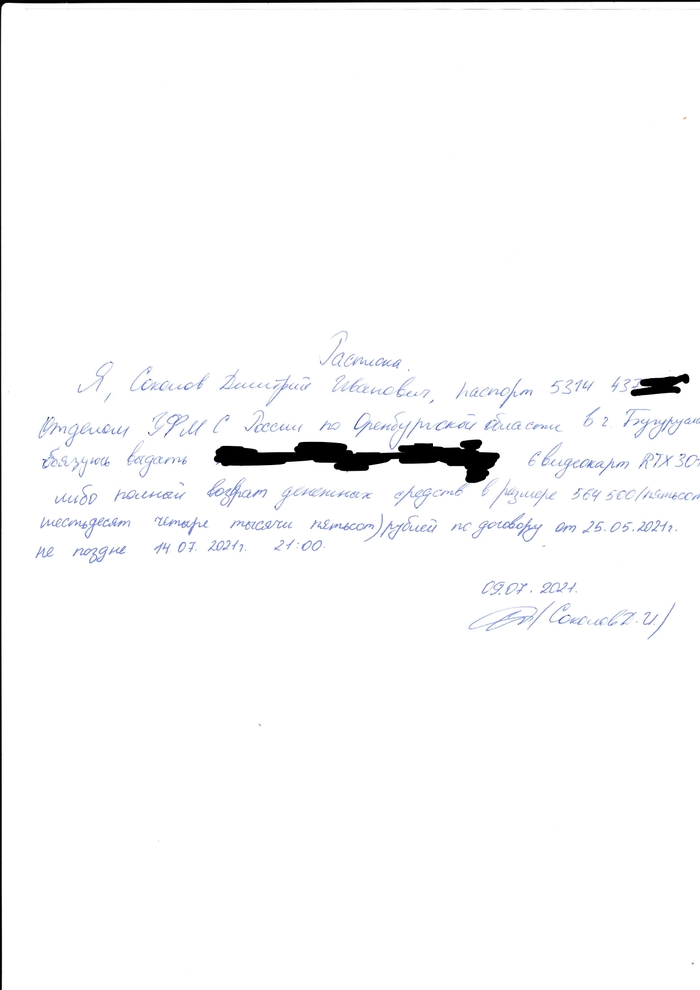 Расписка.
Я, Соколов Дмитрий Иванович, паспорт 5314 437
Отделом УФМС России по Оренбургской области в г. Бугурусла
обязуюсь выдать 6 видеокарт RTX 30
либо полный возврат денежных средств в размере 564 500/пятьсот
шестьдесят четыре тысячи пятьсот) рублей по договору от 25.05.2021г.
не поздне 14.07.2021г. 21:00.
09.07.2021.
/Соколов Д.И./